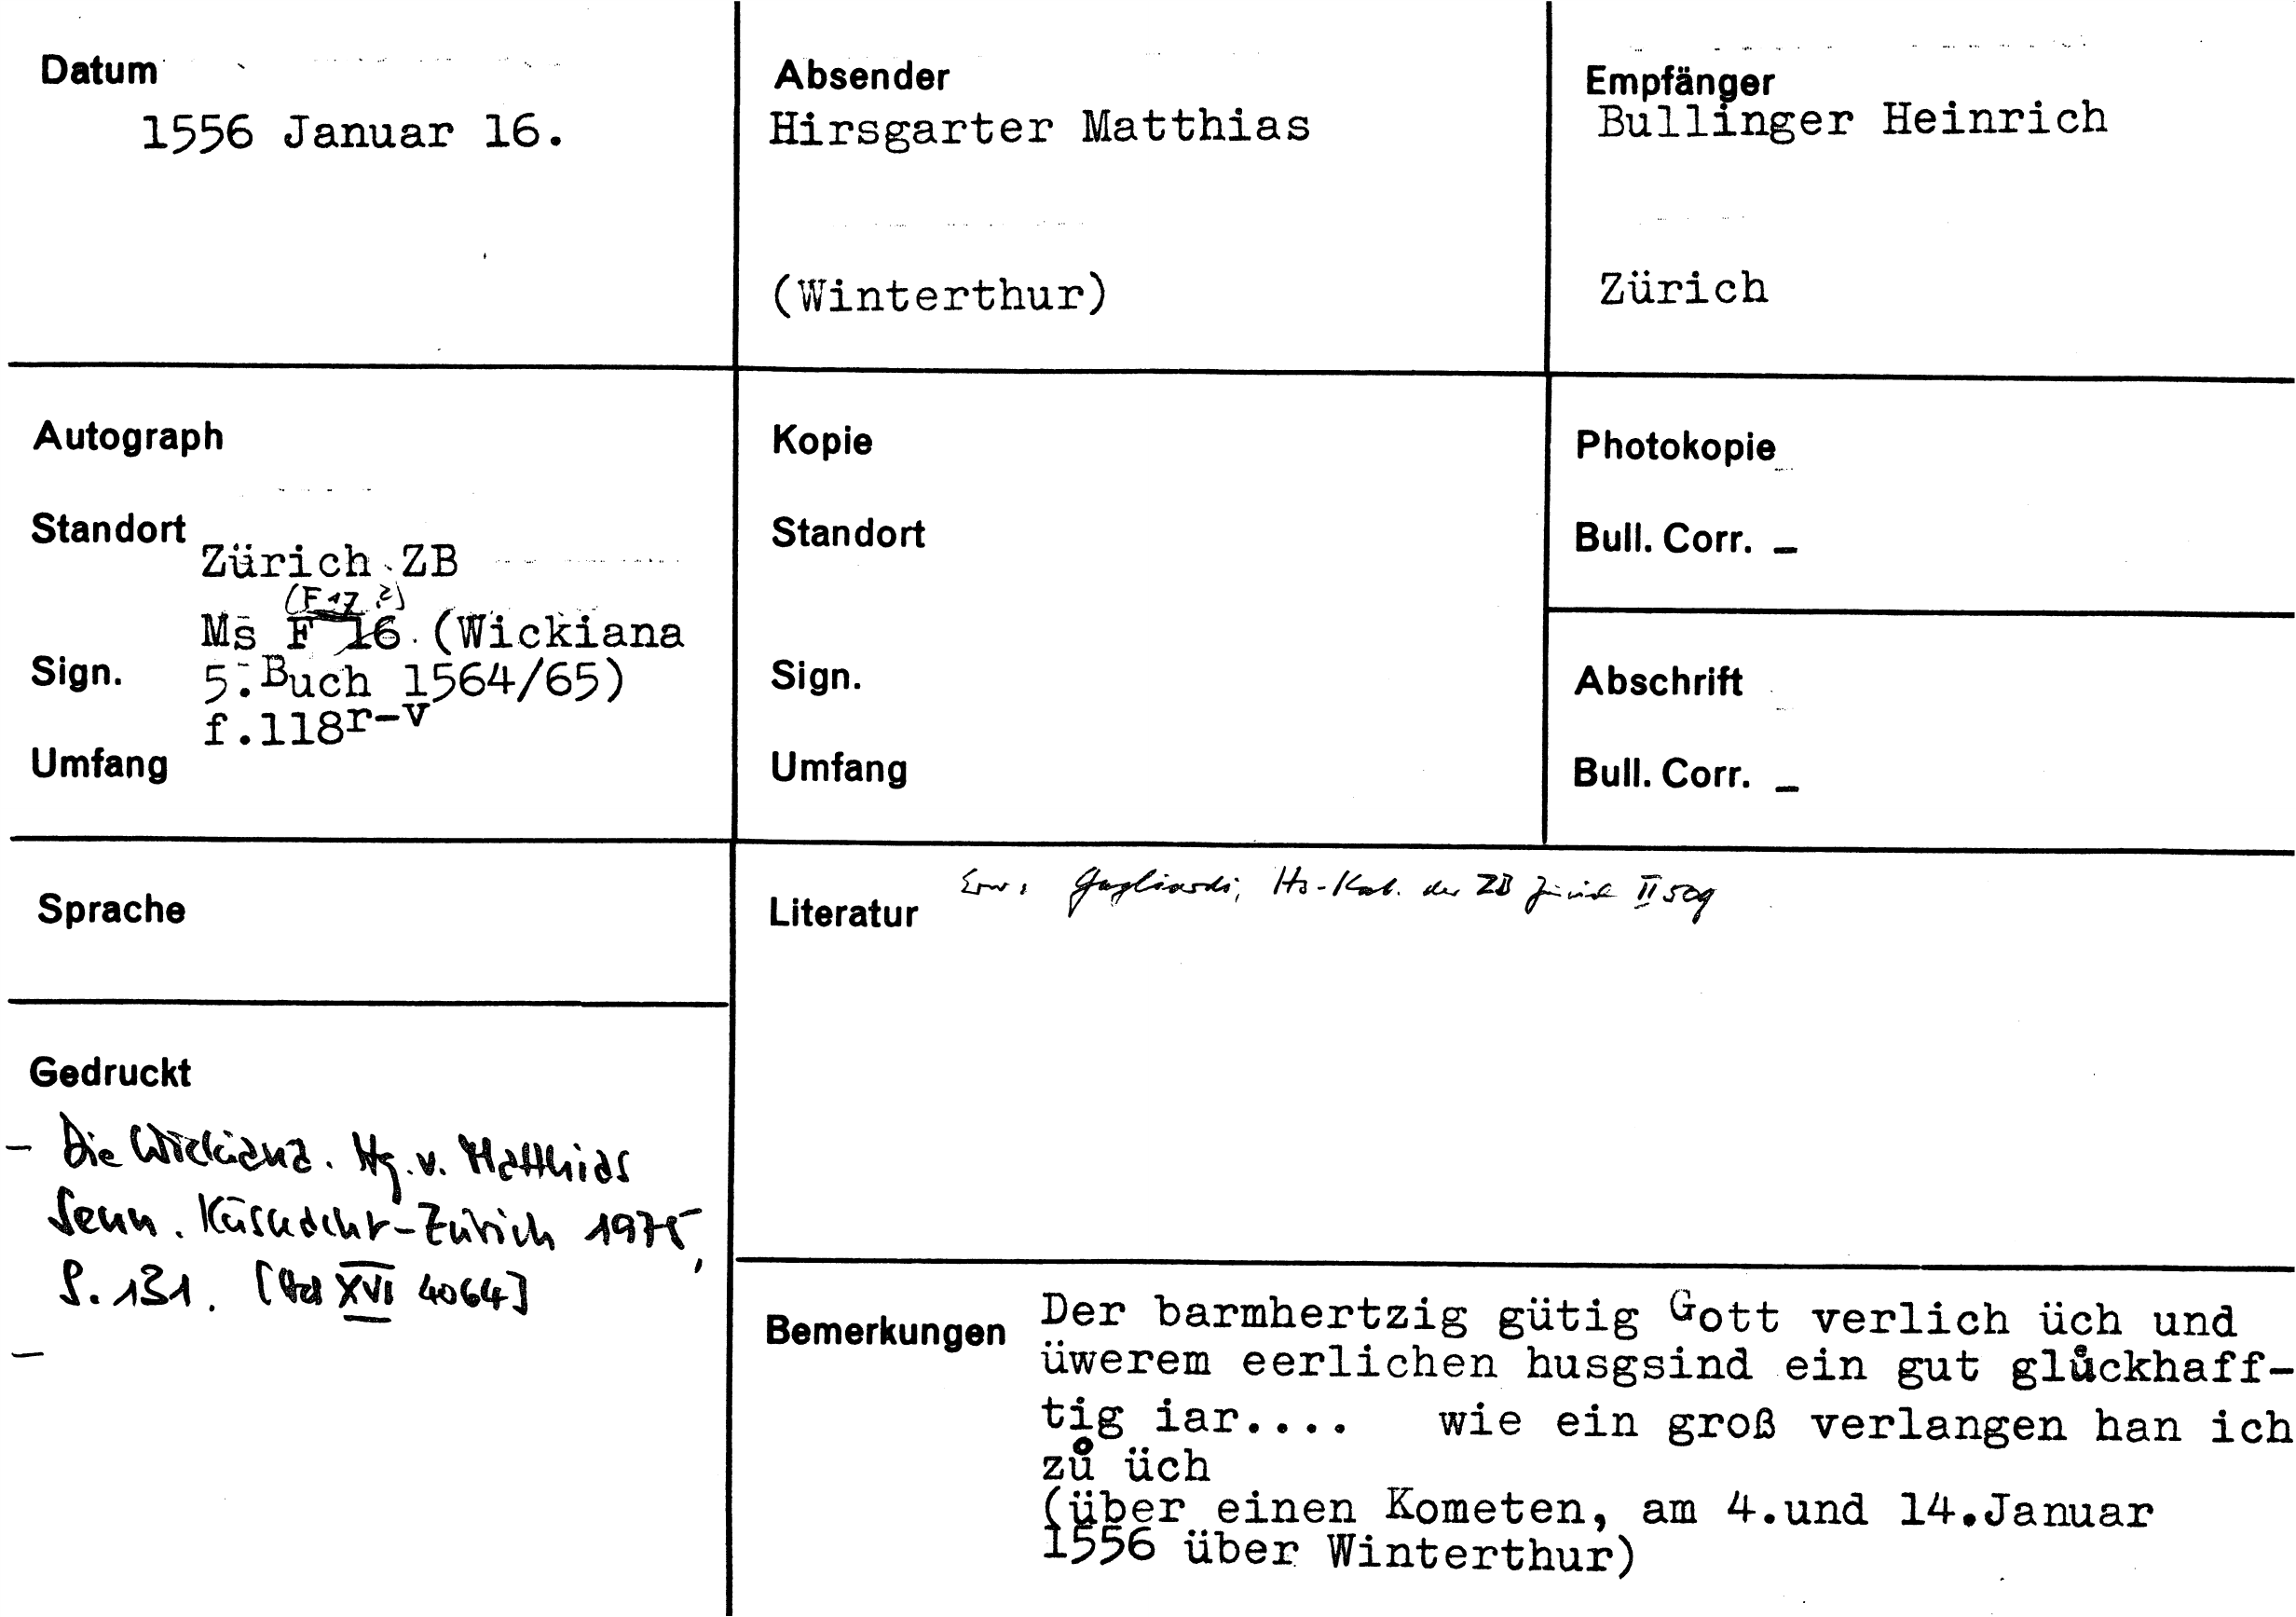 Datum
1556 Januar 16.
Absender
Hirsgarter Matthias
(Winterthur)
Empfänger
Bullinger Heinrich
Zürich
Autograph
Standort
Zürich ZB
(F 17 ?)
Ms F 16 (Wickiana
Sign.
5. Buch 1564/65)
f.118r-v
Umfang
Kopie
Standort
Sign.
Umfang
Photokopie
Bull. Corr. –
Abschrift
Bull. Corr. –
Sprache
Literatur
Erw. Gagliardi, Hs-Kat. der ZB Zürich II 509
Gedruckt
– Die Wickiana. Hg. v. Matthias
Senn. Küsnacht-Zürich 1975,
S. 131. [XVI 4064]
–
Bemerkungen
Der barmhertzig gütig Gott verlich üch und
üwerem eerlichen husgsind ein gut glůckhaff-
tig iar.... wie ein groß verlangen han ich
zů üch
(über einen Kometen, am 4.und 14.Januar
1556 über Winterthur)